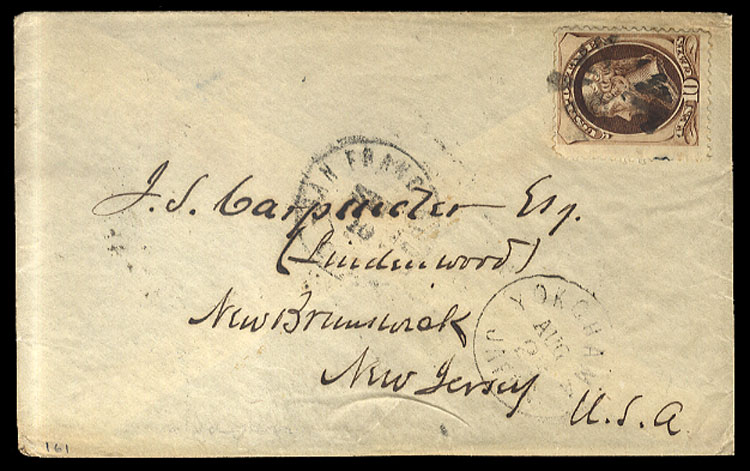 SAN FRANC
J. S. Carpenter Esq.
(Lindenwood)
New Brunswick
New Jersey
U.S.A
YOKOHAMA
AUG
JAPAN
161
10